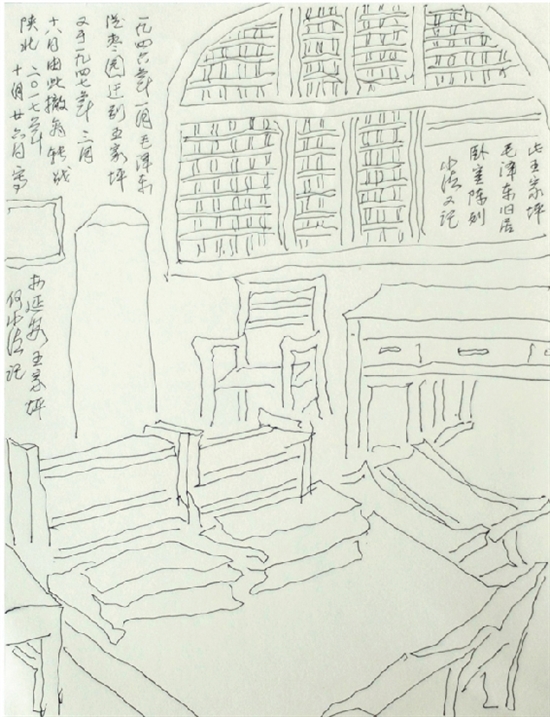 一九四六年一月毛泽东
从枣园迁到王家坪
又于一九四七年三月
十八日由此撤离转战
陕北 二〇一七年十月廿六日 写
于延安王家坪
何小 记
此王家坪
毛泽东旧居
卧室陈列
小 又记